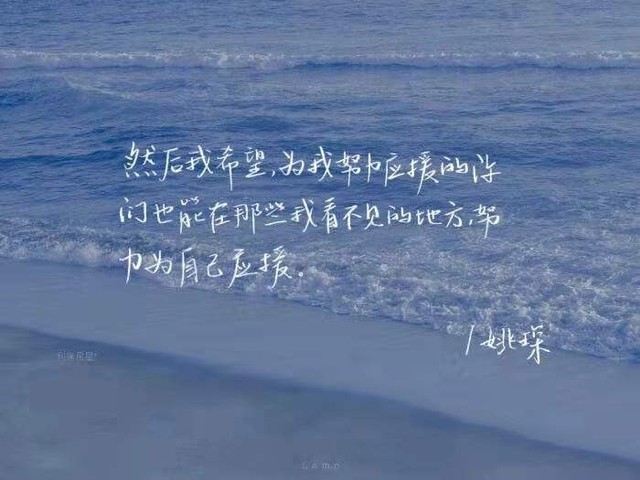 然后我希望,为我努力应援的你
们也能在那些我看不见的地方,努
力为自己应援。
/姚琛